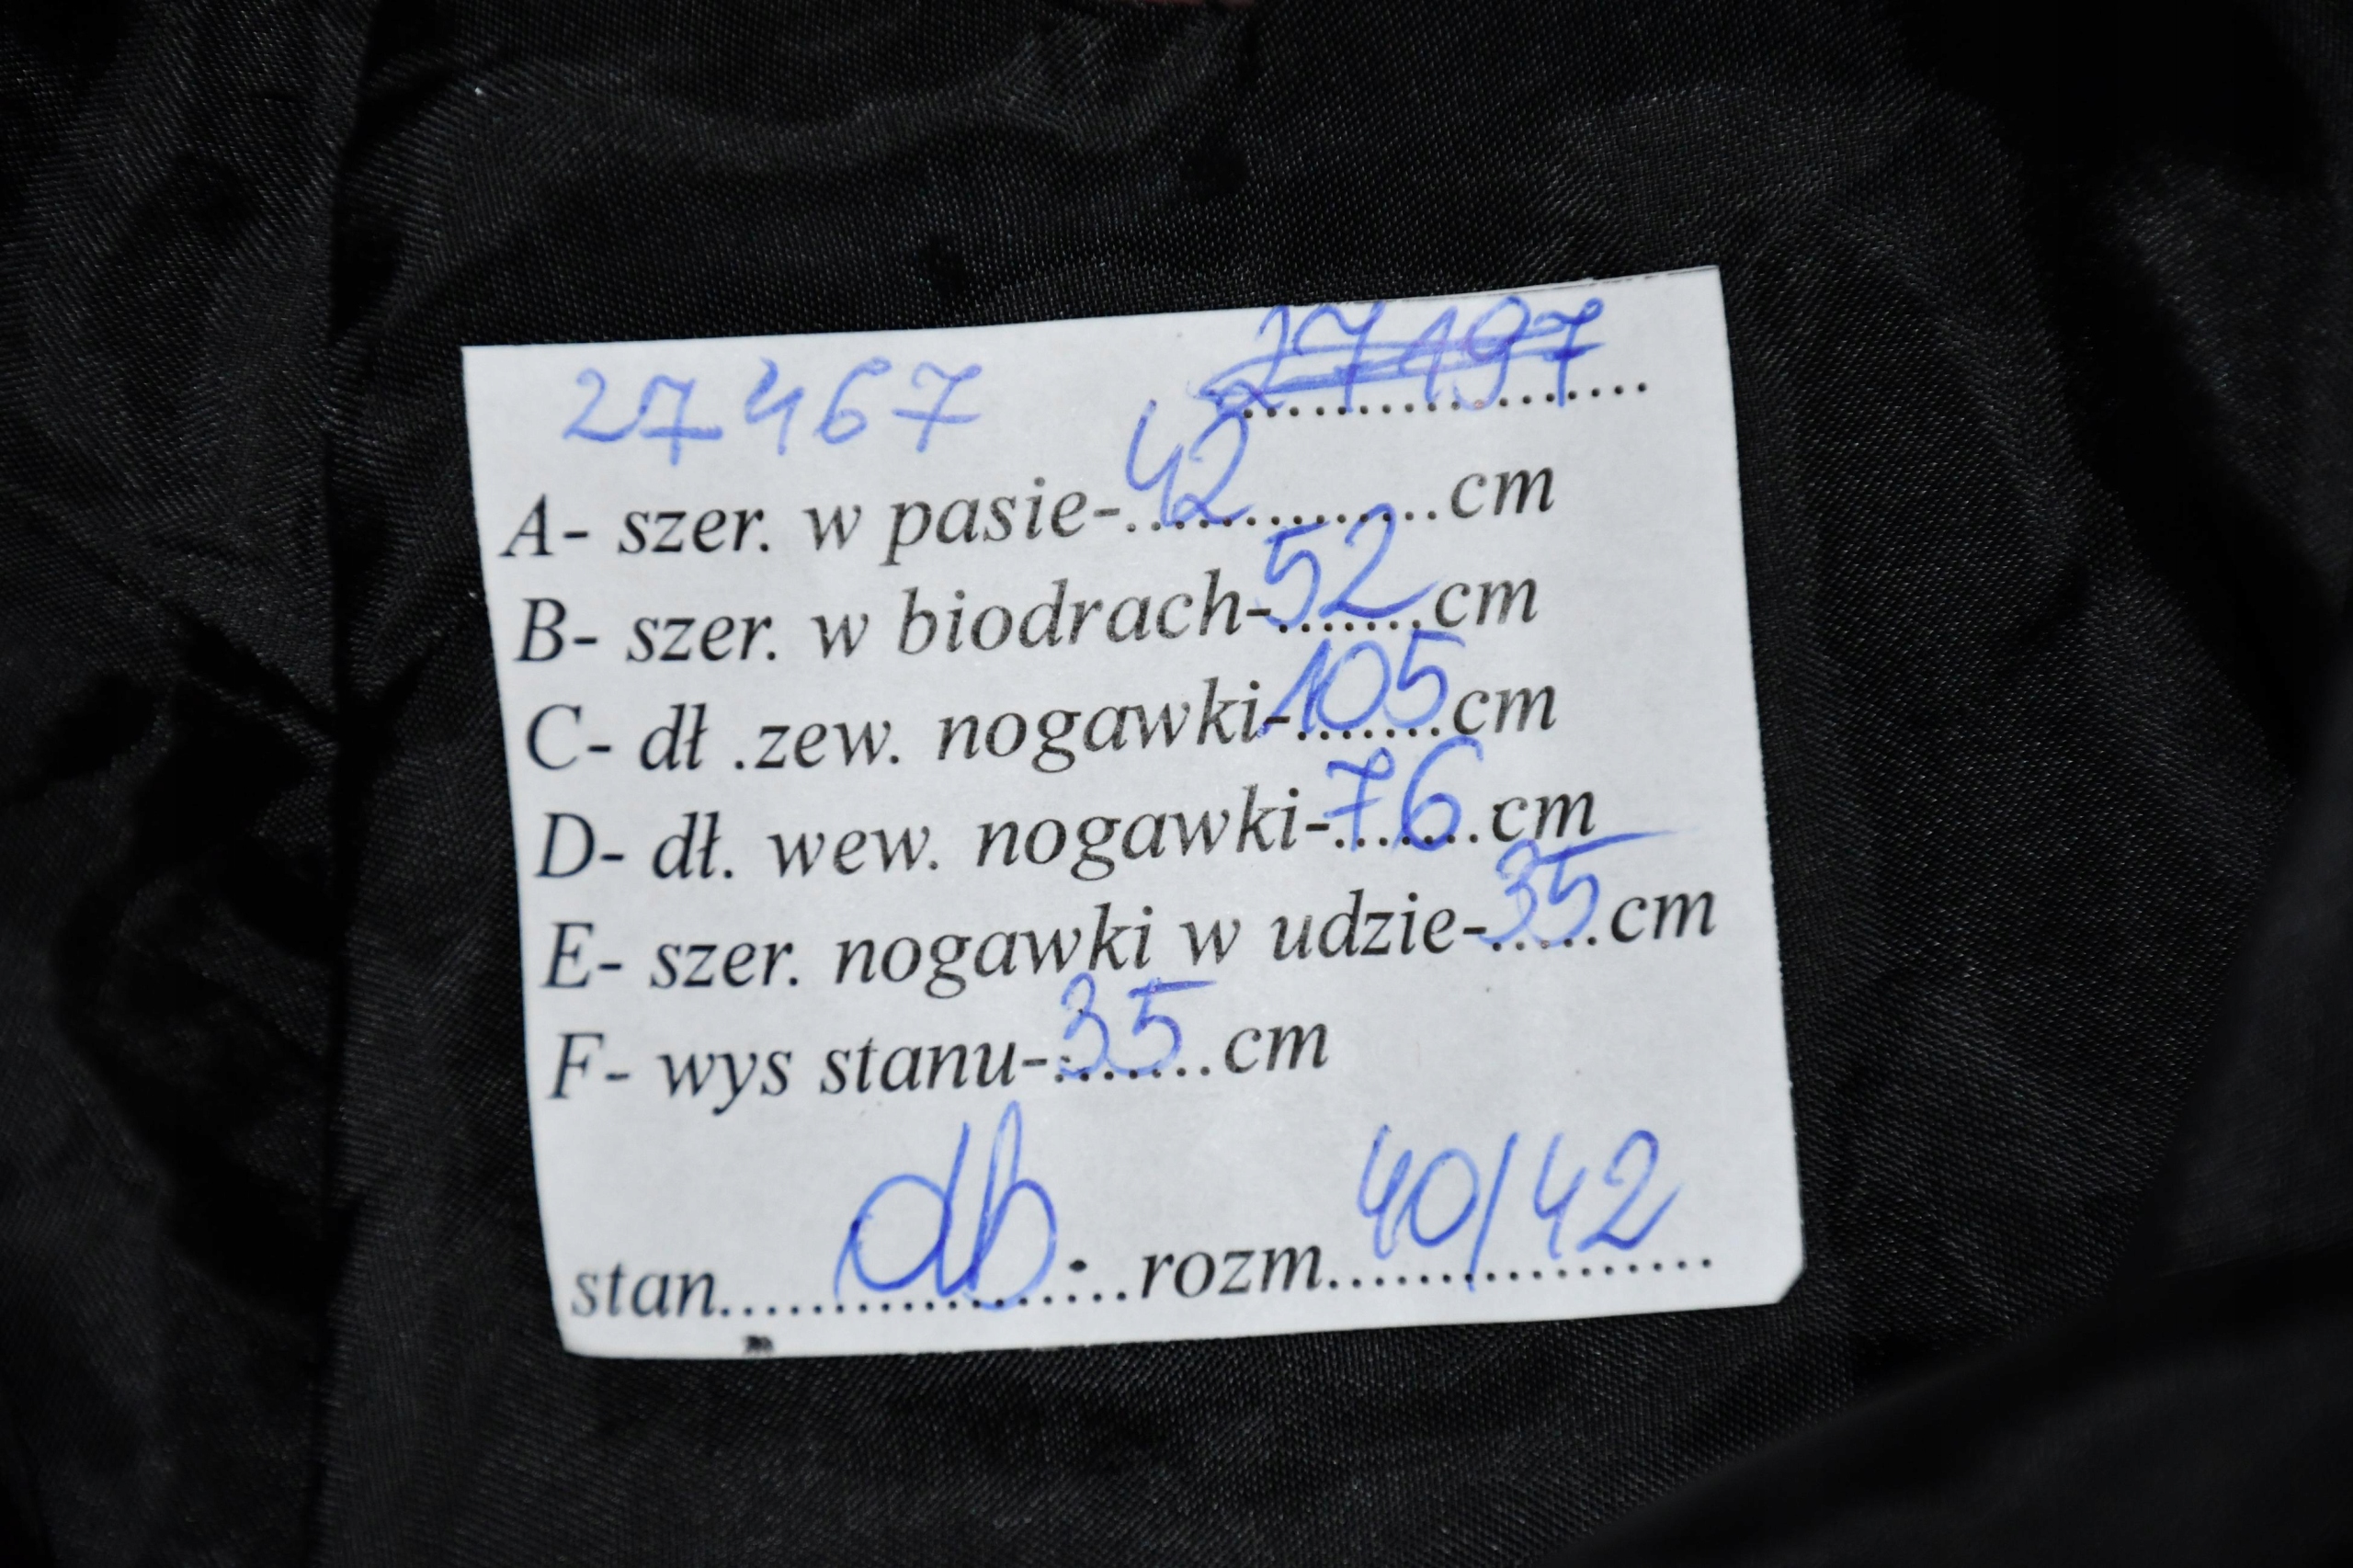 27467 27197
A- szer. w pasie-42..............cm
B- szer. w biodrach-52.......cm
C- dł .zew. nogawki-105.......cm
D- dł. wew. nogawki-76.......cm
E- szer. nogawki w udzie-35.....cm
F- wys stanu-35.......cm
stan....................db...rozm.................40/42